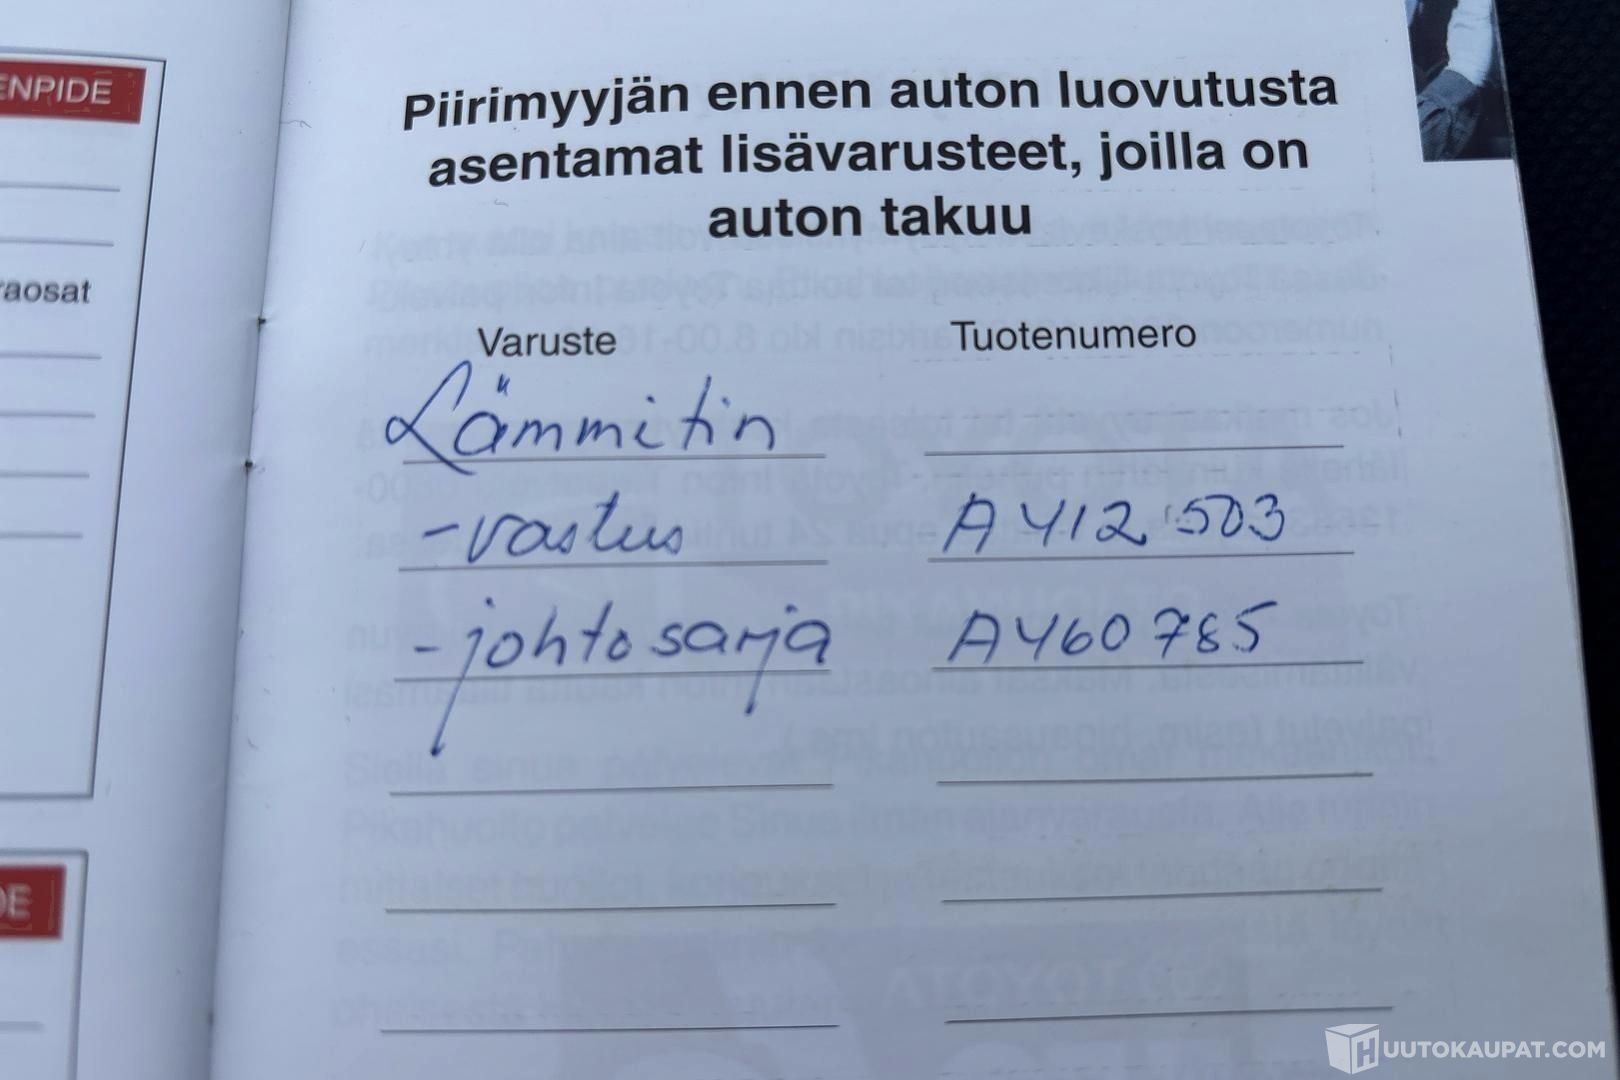 ENPIDE
raosat
DE
Piirimyyjän ennen auton luovutusta
asentamat lisävarusteet, joilla on
auton takuu
Varuste Tuotenumero
Lämmitin
-vastus A412503
-johtosarja A460785
HUUTOKAUPAT.COM